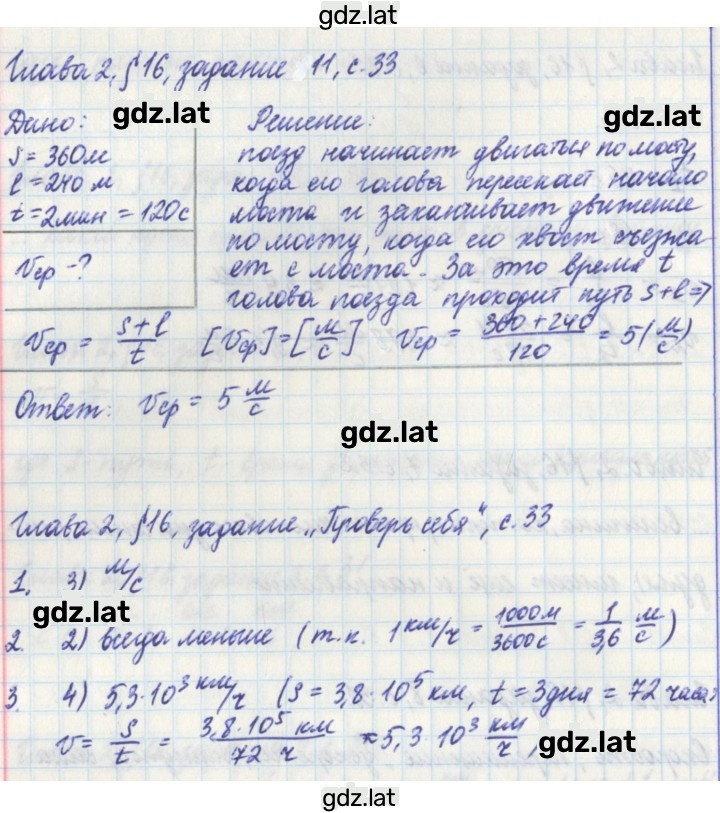 gdz.lat
Глава 2, §16, задание 11, с.33
gdz.lat
gdz.lat
Дано: Решение:
s = 360м поезд начинает двигаться по мосту,
l = 240 м когда его голова пересекает начало
t = 2мин = 120с моста и заканчивает движение
по мосту, когда его хвост съезжа
vср - ? ет с моста. За это время t
голова поезда проходит путь s+l =>
vср = s+l/t [vср] = [м/с] vср = 360+240/120 = 5(м/с)
Ответ: vср = 5 м/с
gdz.lat
Глава 2, §16, задание „Проверь себя“, с.33
1. 3) м/с
gdz.lat
2. 2) всегда меньше (т.к. 1 км/ч = 1000м/3600с = 1/3,6 м/с)
3. 4) 5,3·10³ км/ч (s = 3,8·10⁵ км, t = 3дня = 72 часа)
v = s/t = 3,8·10⁵ км/72 ч ≈ 5,3·10³ км/ч
gdz.lat
gdz.lat